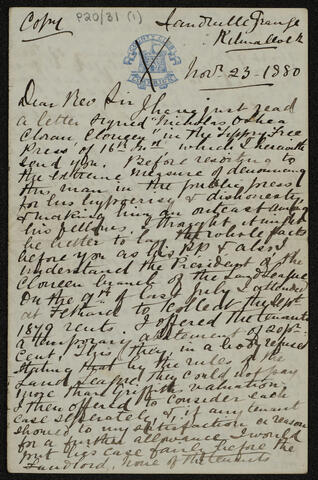 Copy
P20/31 (1)
Sandville Grange
Kilmallock
COUNTY CLUB
Novr 23 - 1880
Dear Rev Sir I have just read
a letter signed "Nicholas O'Shea
Cloran Cloneen" in the Tipp Free
Press of 16th Inst which I herewith
send you. Before resorting to
the extreme measure of denouncing
this man in the public press
for his hypocrisy & dishonesty
& making him an outcast among
his fellows I thought it might
be better to lay the whole facts
before you as his P.P. & also I
understand the President of the
Cloneen branch of the Land League
On the 9th of last July I attended
at Fethard to collect the Sept
1879 rents. I offered the tenants
a temporary abatement of 20 per
Cent. This they in a body refused
stating that by the rules of the
Land League they could not pay
more than Griffiths valuation
I then offered to consider each
case separately & if any tenant
showed to my satisfaction a reason
for a further allowance I would
put his case fairly before the
Landlord, none of the tenants